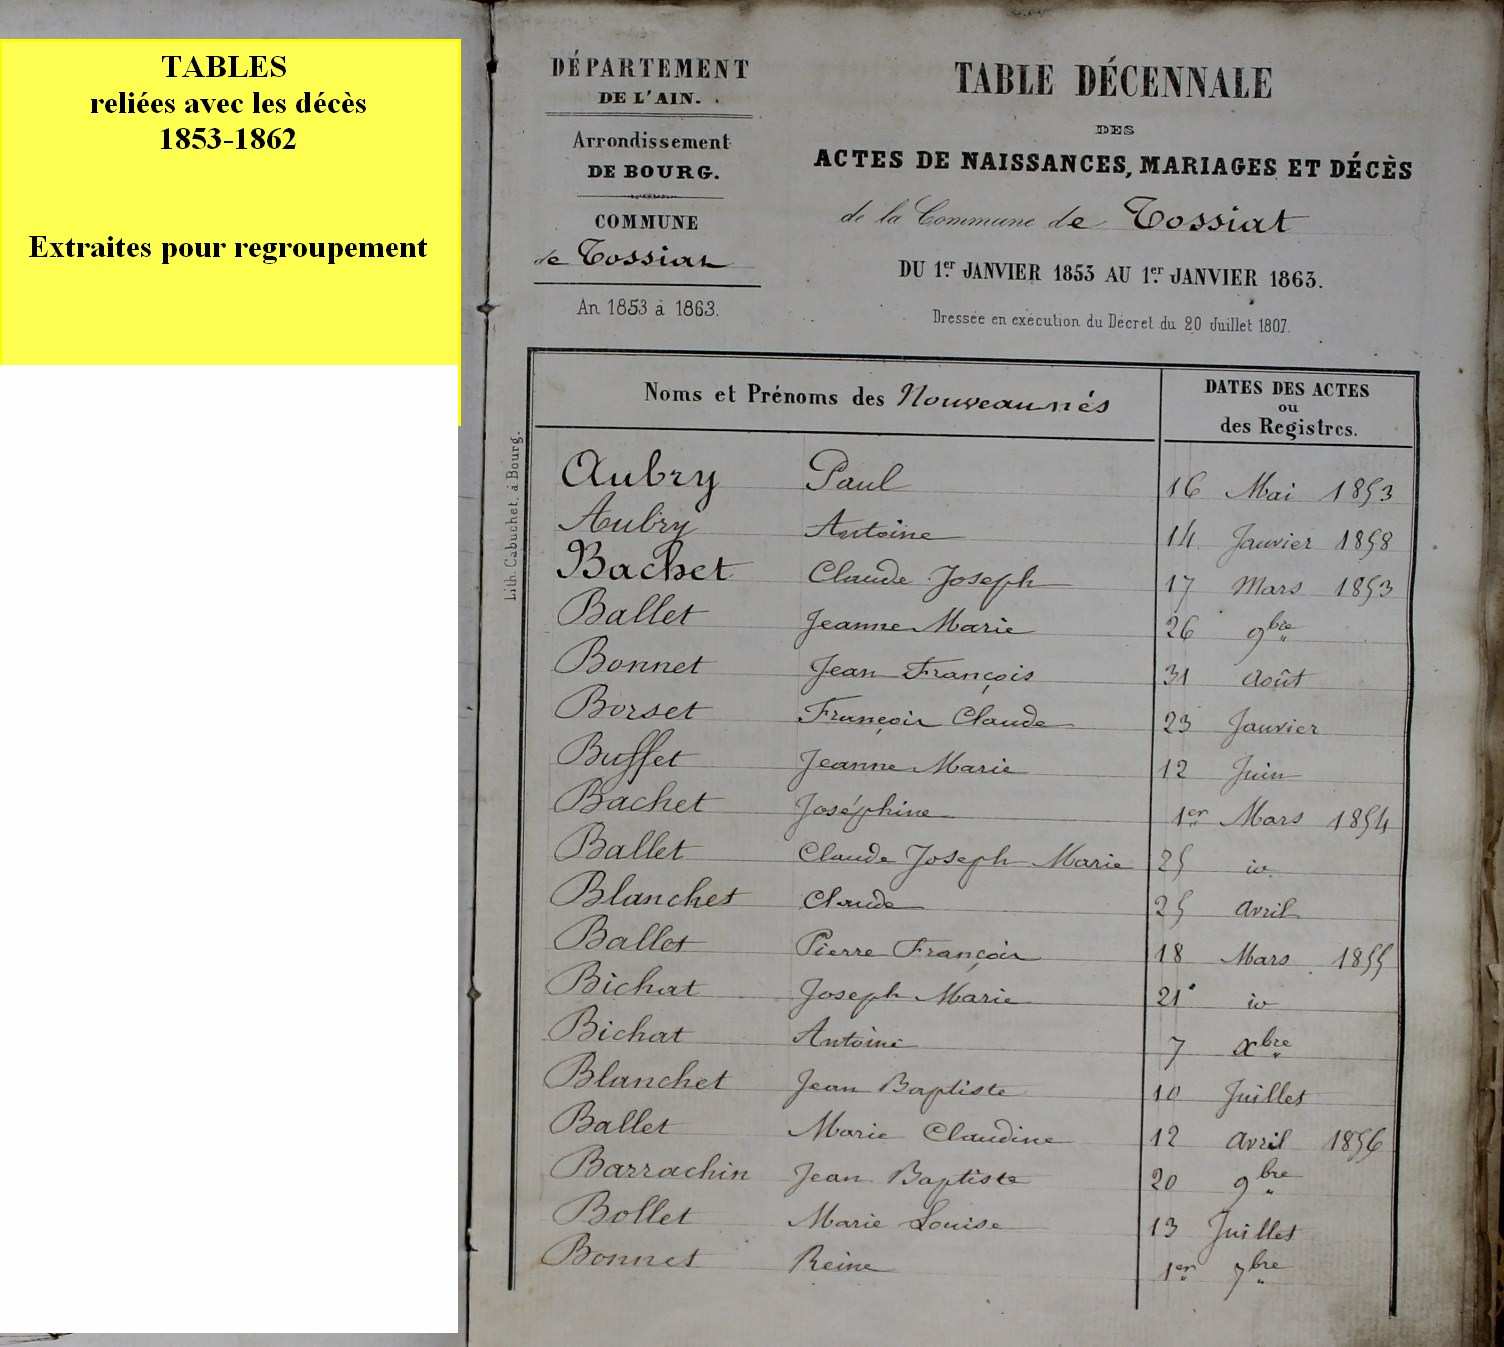 TABLES
reliées avec les décès
1853-1862
Extraites pour regroupement
DÉPARTEMENT
DE L'AIN.
Arrondissement
DE BOURG.
COMMUNE
de Tossiat
An 1853 à 1863.
TABLE DÉCENNALE
DES
ACTES DE NAISSANCES, MARIAGES ET DÉCÈS
de la Commune de Tossiat
DU 1er JANVIER 1853 AU 1er JANVIER 1863.
Dressée en exécution du Décret du 20 Juillet 1807.
Lith. Cabuchet, à Bourg.
Noms et Prénoms des Nouveaunés
DATES DES ACTES
ou
des Registres.
Aubry Paul 16 Mai 1853
Aubry Antoine 14 Janvier 1858
Bachet Claude Joseph 17 Mars 1853
Ballet Jeanne Marie 26 9bre
Bonnet Jean François 31 Août
Borset François Claude 23 Janvier
Buffet Jeanne Marie 12 Juin
Bachet Joséphine 1er Mars 1854
Ballet Claude Joseph Marie 25 id.
Blanchet Claude 25 Avril
Ballet Pierre François 18 Mars 1855
Bichat Joseph Marie 21 id
Bichat Antoine 7 Xbre
Blanchet Jean Baptiste 10 Juillet
Ballet Marie Claudine 12 Avril 1856
Barrachin Jean Baptiste 20 9bre
Bollet Marie Louise 13 Juillet
Bonnet Reine 1er 7bre